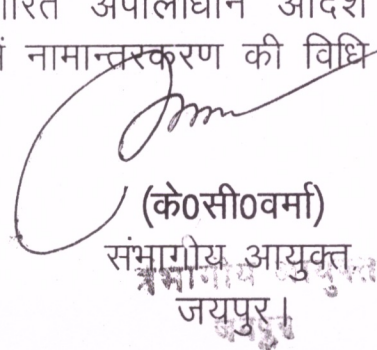 पारित अपीलाधीन आदेश
नामान्तरकरण की विधि
(के0सी0वर्मा)
संभागीय आयुक्त
जयपुर।